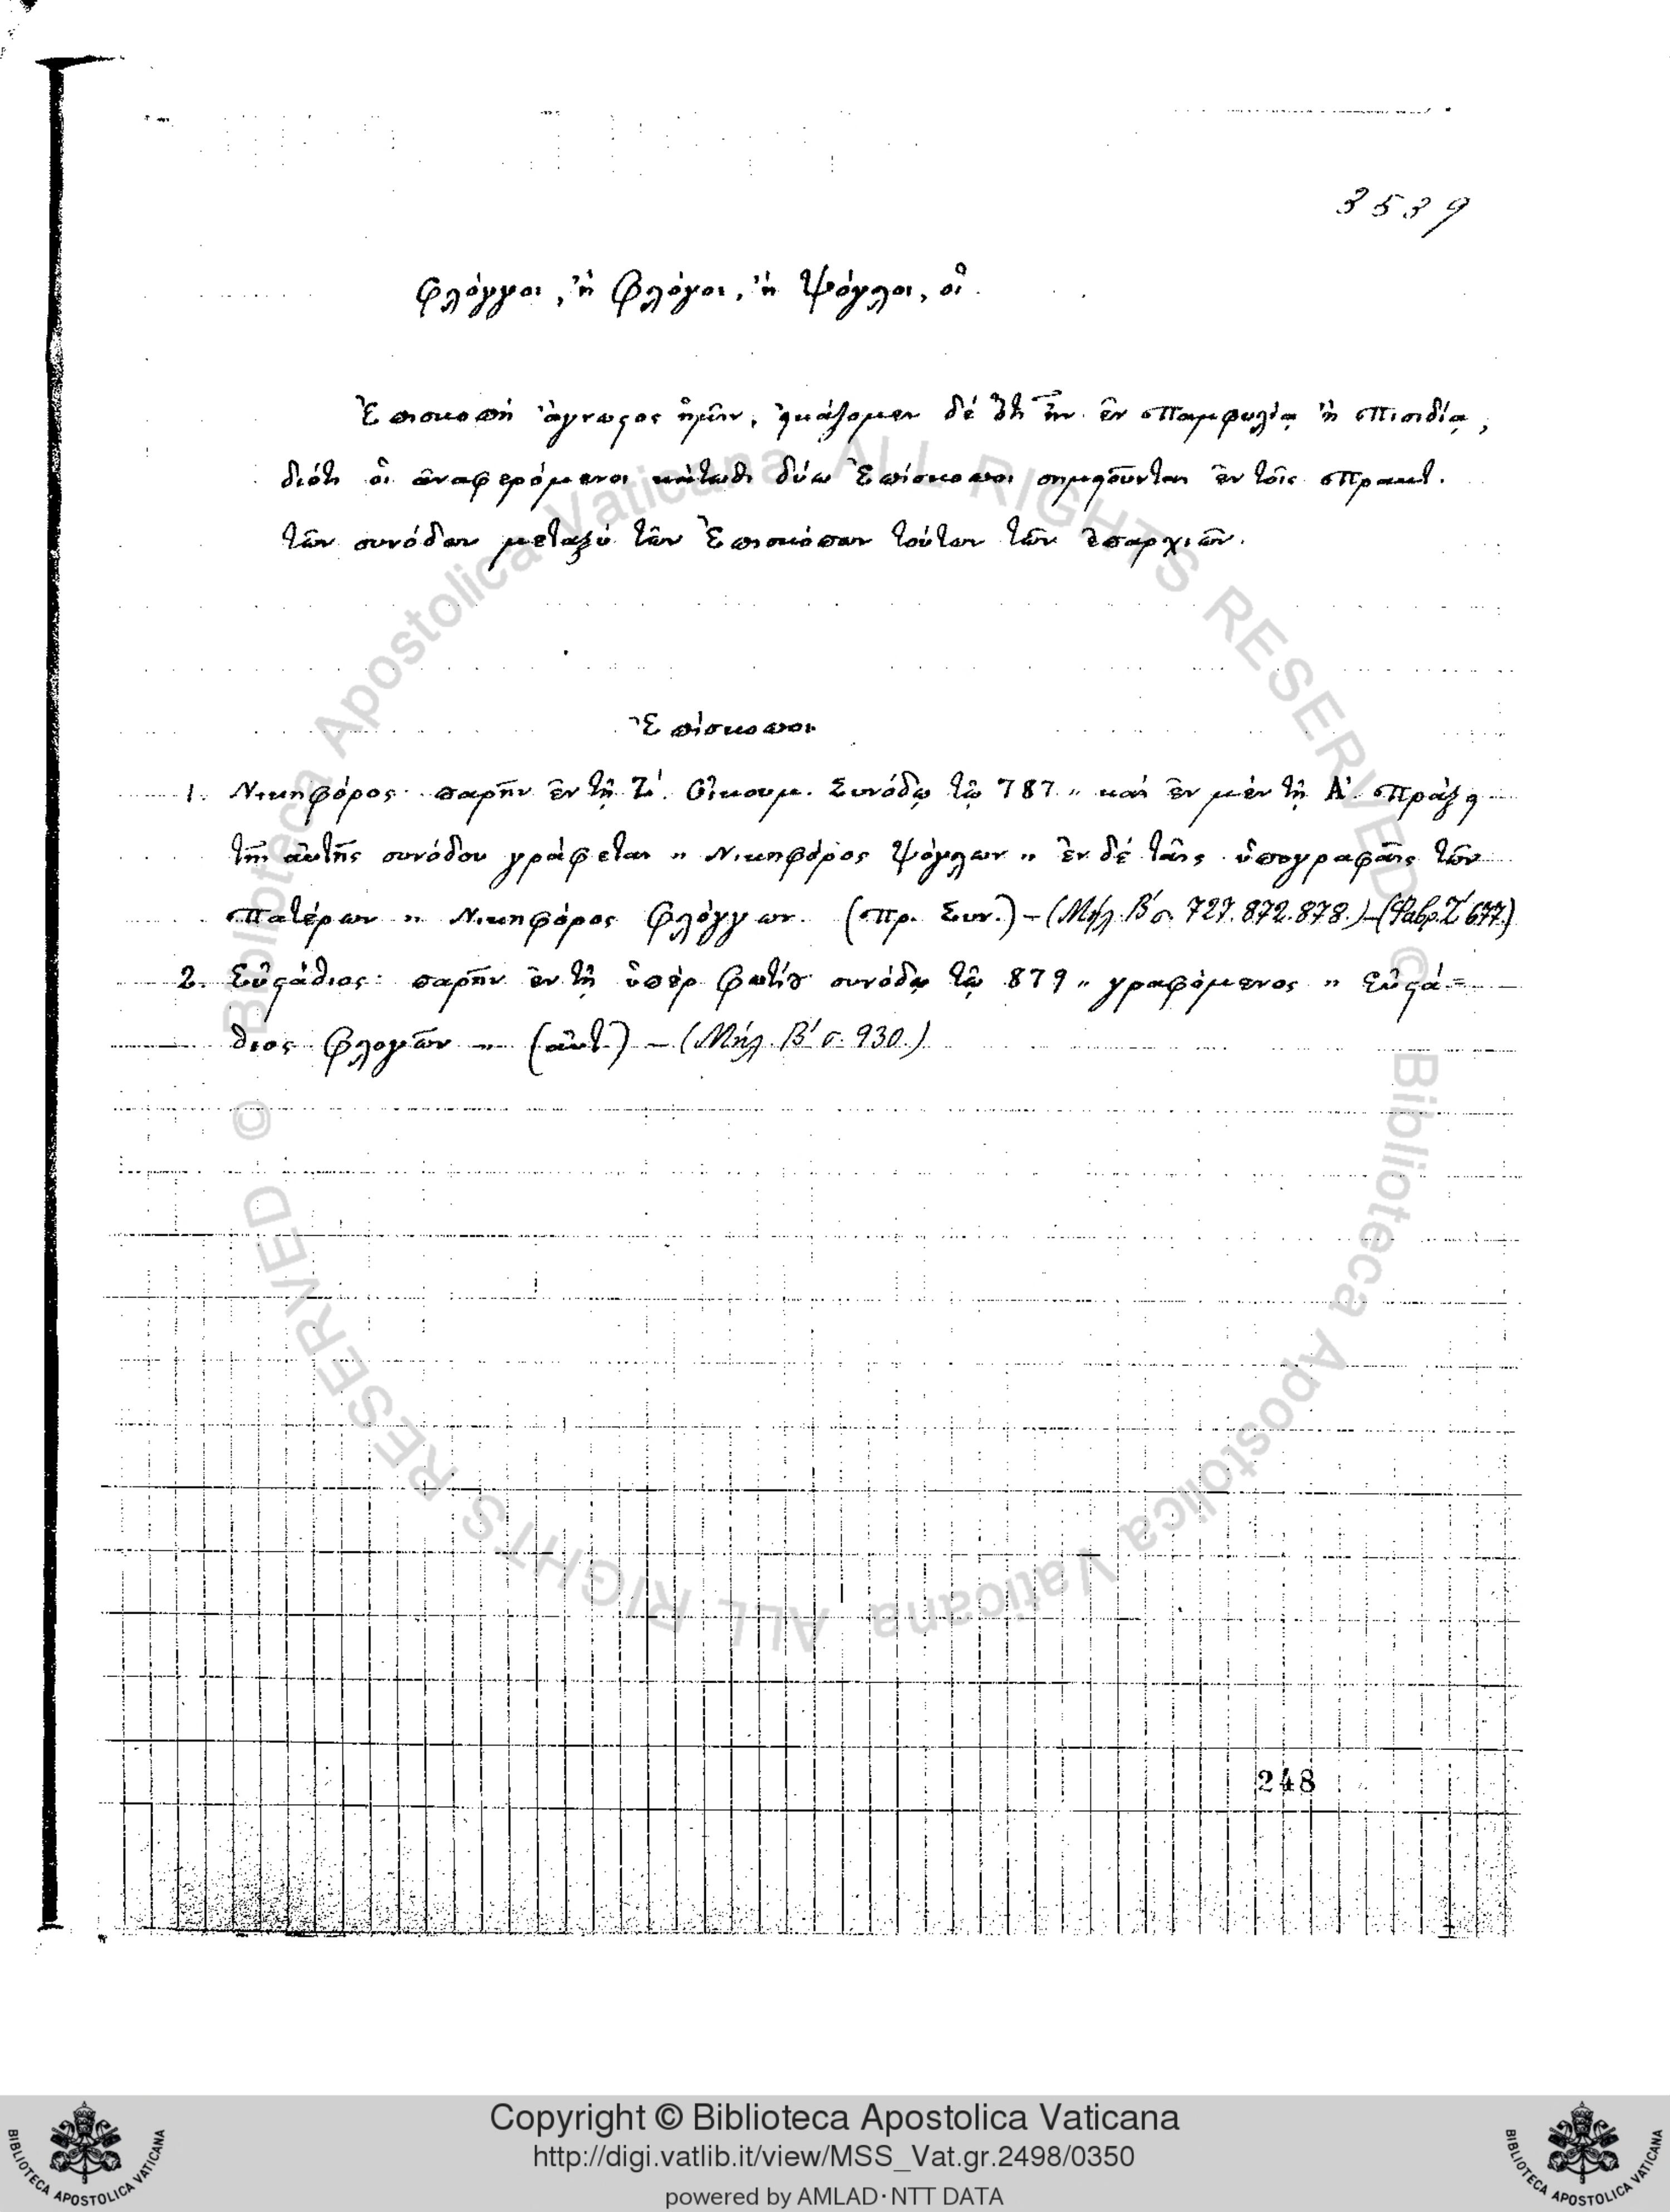 3539
Φλόγγοι, ἢ Φλόγοι, ἢ Ψόγλοι, οἱ.
Ἐπισκοπὴ ἄγνωστος ἡμῖν, εἰκάζομεν δὲ ὅτι ἦν ἐν Παμφυλίᾳ ἢ Πισιδίᾳ,
διότι οἱ ἀναφερόμενοι κάτωθι δύω Ἐπίσκοποι σημειοῦνται ἐν τοῖς Πρακτ.
τῶν συνόδων μεταξὺ τῶν Ἐπισκόπων τούτων τῶν ἐπαρχιῶν.
Ἐπίσκοποι
1. Νικηφόρος· παρῆν ἐν τῇ Ζ΄. Οἰκουμ. Συνόδῳ τῷ 787 „ καὶ ἐν μὲν τῇ Α΄. Πράξει
τῆς αὐτῆς συνόδου γράφεται „ Νικηφόρος Ψόγλων „ ἐν δὲ ταῖς ὑπογραφαῖς τῶν
Πατέρων „ Νικηφόρος Φλόγγων. (Πρ. Συν.) – (Μήλ. Β΄ σ. 727. 872. 878.) – (Φαβρ. Ζ΄ 677.)
2. Εὐστάθιος: παρῆν ἐν τῇ ὑπὲρ Φωτίου συνόδῳ τῷ 879 „ γραφόμενος „ Εὐστά=
θιος Φλογῶν „ (αὐτ.) – (Μήλ. Β΄ σ. 930.)
248
© Biblioteca Apostolica Vaticana ALL RIGHTS RESERVED © Biblioteca Apostolica Vaticana ALL RIGHTS RESERVED
Copyright © Biblioteca Apostolica Vaticana
http://digi.vatlib.it/view/MSS_Vat.gr.2498/0350
powered by AMLAD·NTT DATA
BIBLIOTECA APOSTOLICA VATICANA
BIBLIOTECA APOSTOLICA VATICANA